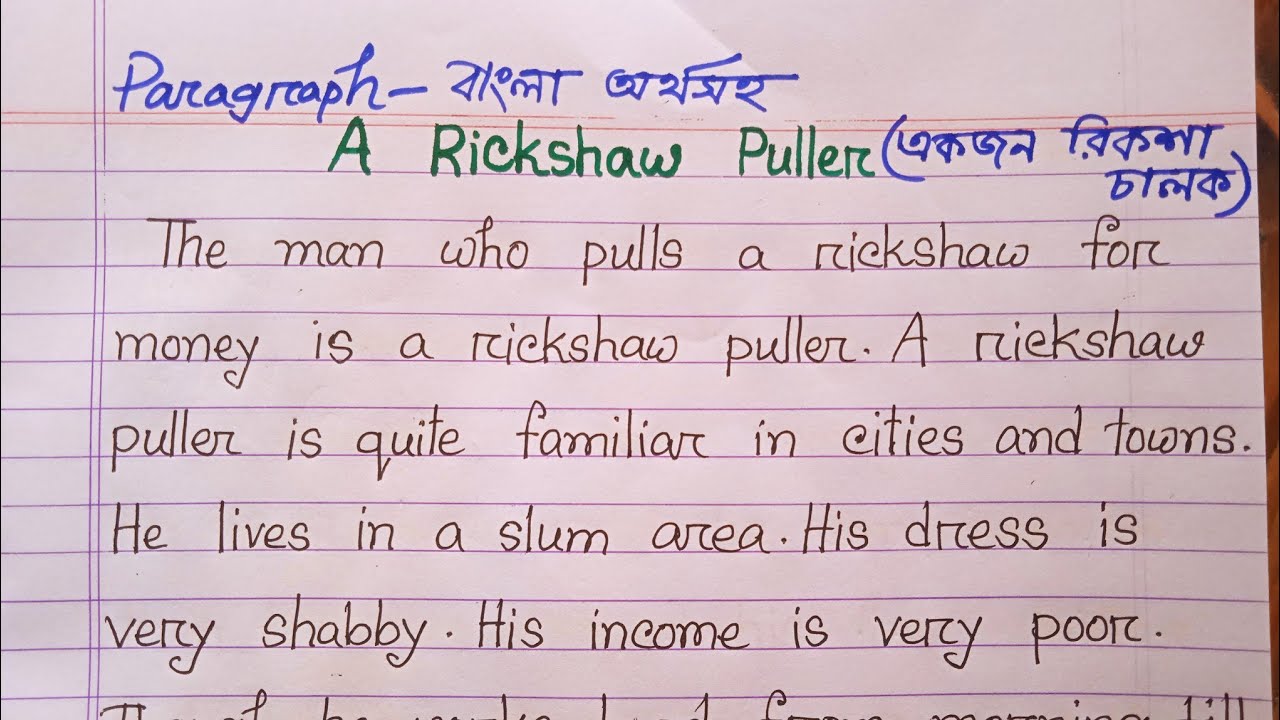 Paragraph - বাংলা অর্থসহ
A Rickshaw Puller (একজন রিকশা
চালক)
The man who pulls a rickshaw for
money is a rickshaw puller. A rickshaw
puller is quite familiar in cities and towns.
He lives in a slum area. His dress is
very shabby. His income is very poor.